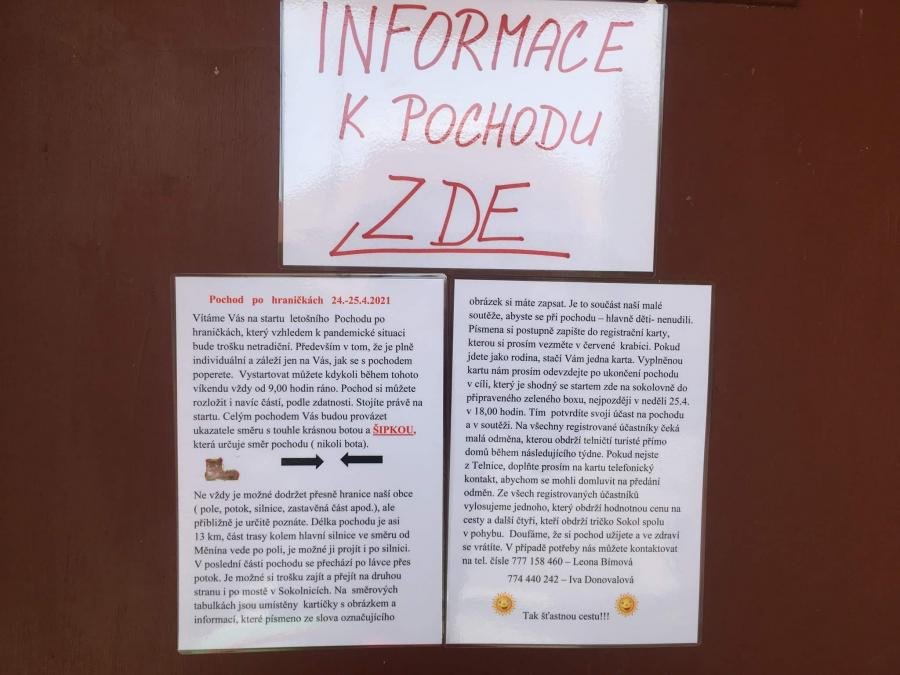 INFORMACE
K POCHODU
ZDE
Pochod po hraničkách 24.-25.4.2021
Vítáme Vás na startu letošního Pochodu po
hraničkách, který vzhledem k pandemické situaci
bude trošku netradiční. Především v tom, že je plně
individuální a záleží jen na Vás, jak se s pochodem
poperete. Vystartovat můžete kdykoli během tohoto
víkendu vždy od 9,00 hodin ráno. Pochod si můžete
rozložit i navíc částí, podle zdatnosti. Stojíte právě na
startu. Celým pochodem Vás budou provázet
ukazatele směru s touhle krásnou botou a ŠIPKOU,
která určuje směr pochodu ( nikoli bota).
Ne vždy je možné dodržet přesně hranice naší obce
( pole, potok, silnice, zastavěná část apod.), ale
přibližně je určitě poznáte. Délka pochodu je asi
13 km, část trasy kolem hlavní silnice ve směru od
Měnína vede po poli, je možné ji projít i po silnici.
V poslední části pochodu se přechází po lávce přes
potok. Je možné si trošku zajít a přejít na druhou
stranu i po mostě v Sokolnicích. Na směrových
tabulkách jsou umístěny kartičky s obrázkem a
informací, které písmeno ze slova označujícího
obrázek si máte zapsat. Je to součást naší malé
soutěže, abyste se při pochodu – hlavně děti- nenudili.
Písmena si postupně zapište do registrační karty,
kterou si prosím vezměte v červené krabici. Pokud
jdete jako rodina, stačí Vám jedna karta. Vyplněnou
kartu nám prosím odevzdejte po ukončení pochodu
v cíli, který je shodný se startem zde na sokolovně do
připraveného zeleného boxu, nejpozději v neděli 25.4.
v 18,00 hodin. Tím potvrdíte svoji účast na pochodu
a v soutěži. Na všechny registrované účastníky čeká
malá odměna, kterou obdrží telničtí turisté přímo
domů během následujícího týdne. Pokud nejste
z Telnice, doplňte prosím na kartu telefonický
kontakt, abychom se mohli domluvit na předání
odměn. Ze všech registrovaných účastníků
vylosujeme jednoho, který obdrží hodnotnou cenu na
cesty a další čtyři, kteří obdrží tričko Sokol spolu
v pohybu. Doufáme, že si pochod užijete a ve zdraví
se vrátíte. V případě potřeby nás můžete kontaktovat
na tel. čísle 777 158 460 – Leona Bímová
774 440 242 – Iva Donovalová
Tak šťastnou cestu!!!